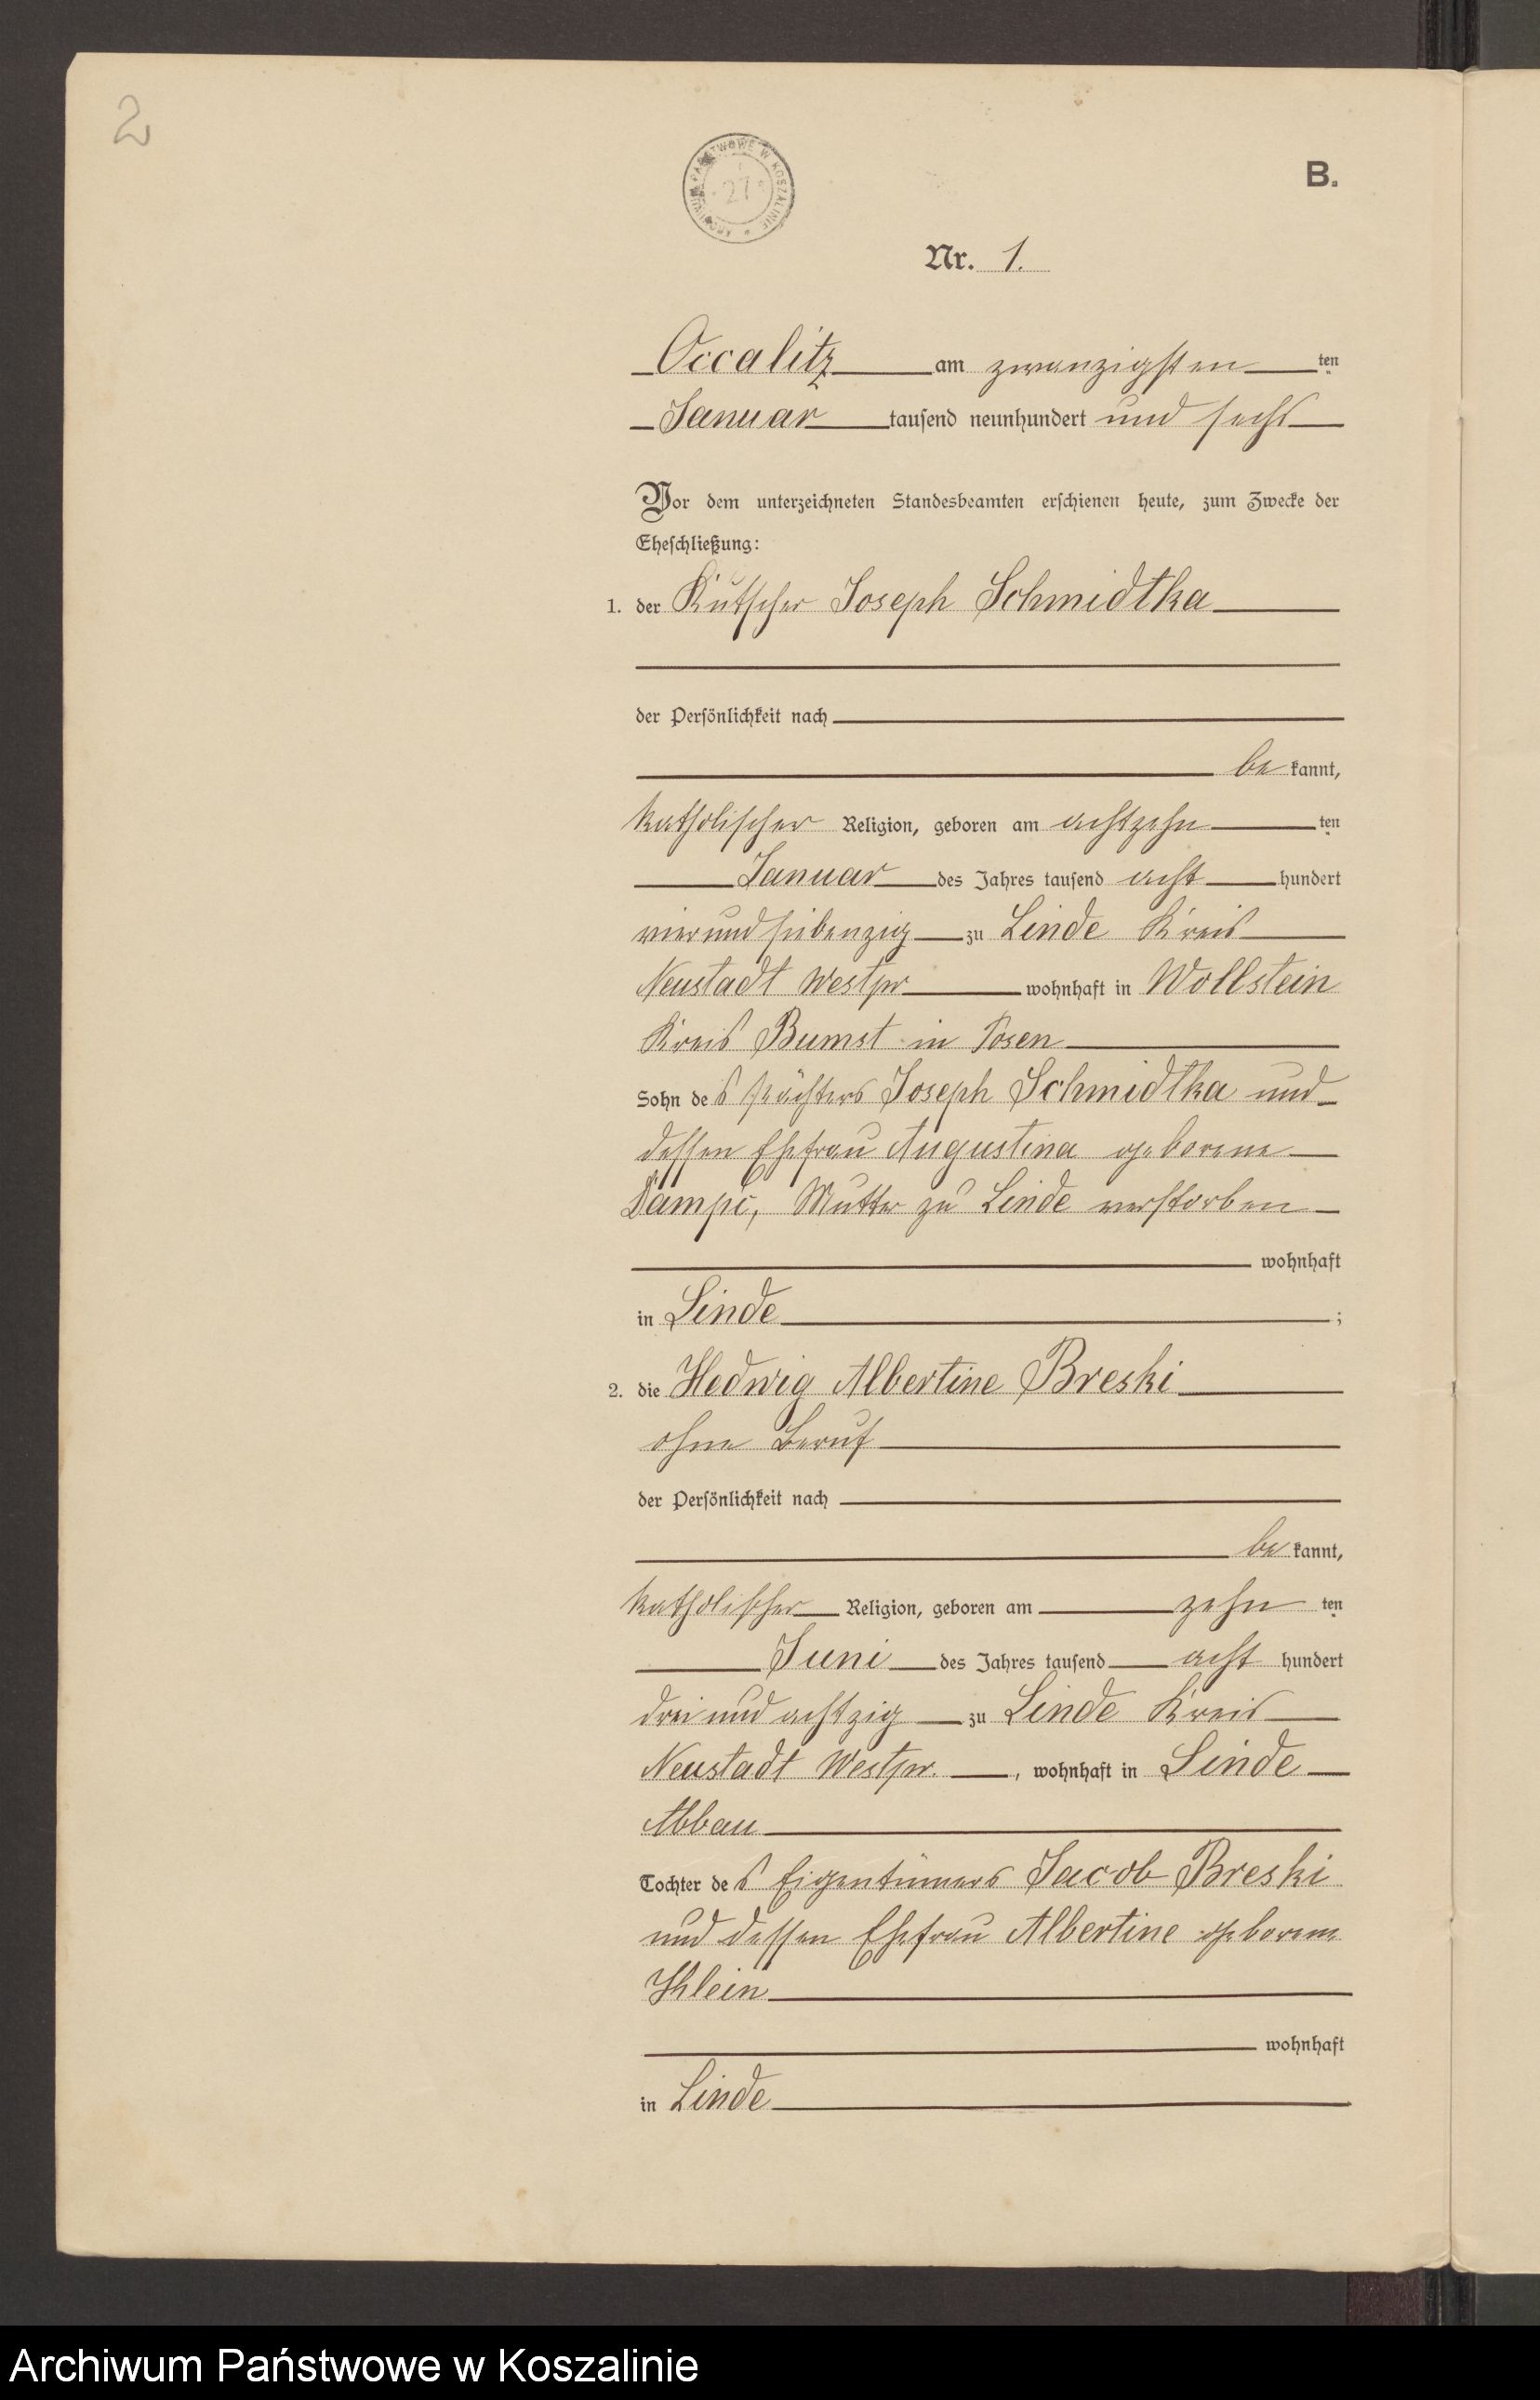 2
ARCHIWUM PAŃSTWOWE W KOSZALINIE
27
B.
Nr. 1.
Occalitz am zwanzigsten ten
Januar tausend neunhundert und sechs
Vor dem unterzeichneten Standesbeamten erschienen heute, zum Zwecke der
Eheschließung:
1. der Kutscher Joseph Schmidtka
der Persönlichkeit nach
be kannt,
katholischer Religion, geboren am achtzehn ten
Januar des Jahres tausend acht hundert
vier und siebenzig zu Linde Kreis
Neustadt Westpr wohnhaft in Wollstein
Kreis Bumst in Posen
Sohn des Pächters Joseph Schmidtka und
dessen Ehefrau Augustina geborene
Mutter zu Linde verstorben
wohnhaft
in Linde ;
2. die Hedwig Albertine Breski
ohne Beruf
der Persönlichkeit nach
be kannt,
katholischer Religion, geboren am zehn ten
Juni des Jahres tausend acht hundert
drei und achtzig zu Linde Kreis
Neustadt Westpr. , wohnhaft in Linde
Abbau
Tochter des Eigentümers Jacob Breski
und dessen Ehefrau Albertine geborene
wohnhaft
in Linde
Archiwum Państwowe w Koszalinie